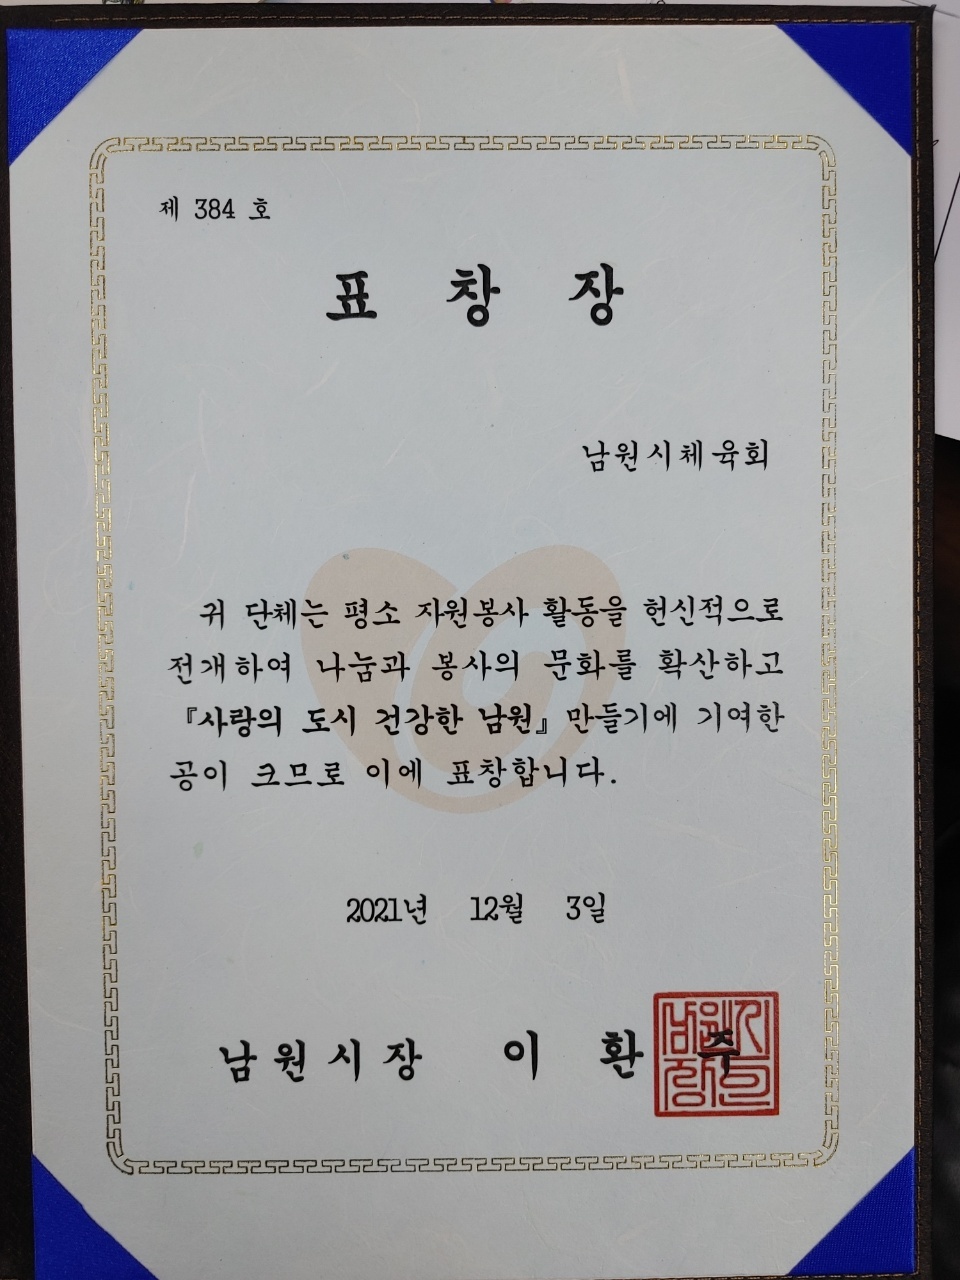 제 384 호
표 창 장
남원시체육회
귀 단체는 평소 자원봉사 활동을 헌신적으로
전개하여 나눔과 봉사의 문화를 확산하고
『사랑의 도시 건강한 남원』만들기에 기여한
공이 크므로 이에 표창합니다.
2021년 12월 3일
남원시장 이 환 주